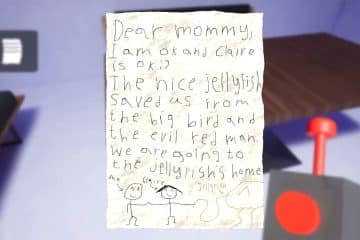 Dear mommy,
I am ok and Claire
is ok:)
The nice jellyfish
saved us from
the big bird and
the evil red man.
we are going to
the jellyfish's home
me
Claire